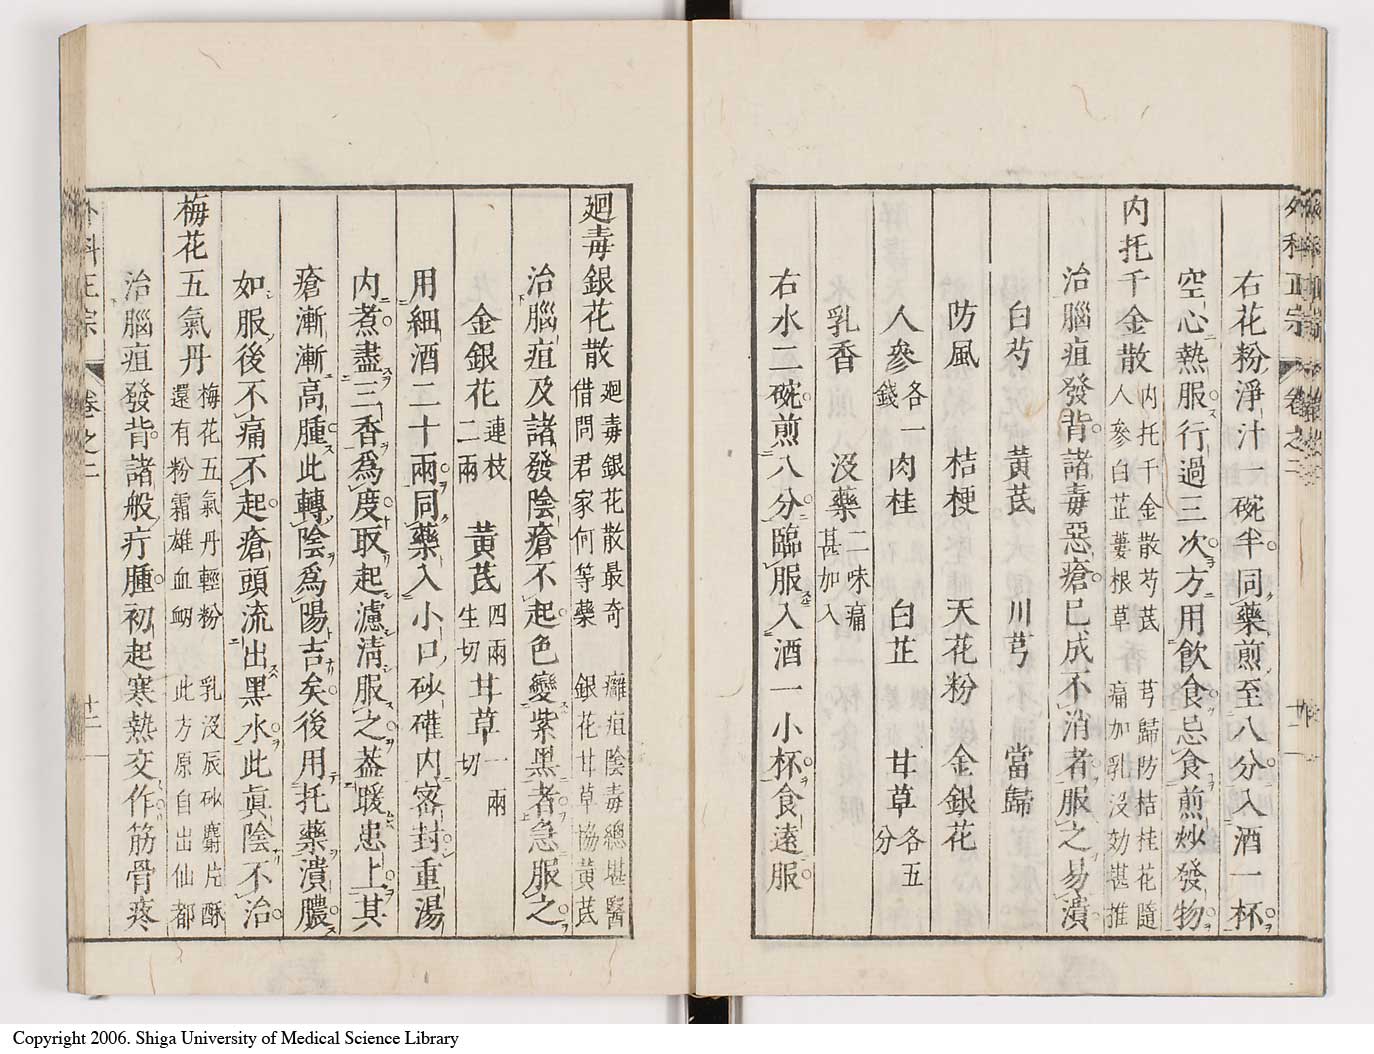 右花粉淨汁一碗半同藥煎至八分入酒一杯
空心熱服行過三次方用飲食忌食煎炒發物
內托千金散 內托千金散芍芪 芎歸防桔桂花隨
人參白芷蔞根草 痛加乳沒効堪推
治腦疽發背諸毒惡瘡已成不消者服之易潰
白芍 黃芪 川芎 當歸
防風 桔梗 天花粉 金銀花
人參各一錢 肉桂 白芷 甘草各五分
乳香 沒藥二味痛甚加入
右水二碗煎八分臨服入酒一小杯食遠服
外科正宗 卷之二
廻毒銀花散 廻毒銀花散最奇 癰疽陰毒總堪醫
借問君家何等藥 銀花甘草協黃芪
治腦疽及諸發陰瘡不起色變紫黑者急服之
金銀花連枝二兩 黃芪四兩生切 甘草一兩切
用細酒二十兩同藥入小口砂礶內密封重湯
內煮盡三香爲度取起濾清服之葢暖患上其
瘡漸漸高腫此轉陰爲陽吉矣後用托藥潰膿
如服後不痛不起瘡頭流出黑水此眞陰不治
梅花五氣丹 梅花五氣丹輕粉 乳沒辰砂麝片酥
還有粉霜雄血衂 此方原自出仙都
治腦疽發背諸般疔腫初起寒熱交作筋骨疼
卷之二
十二
Copyright 2006. Shiga University of Medical Science Library